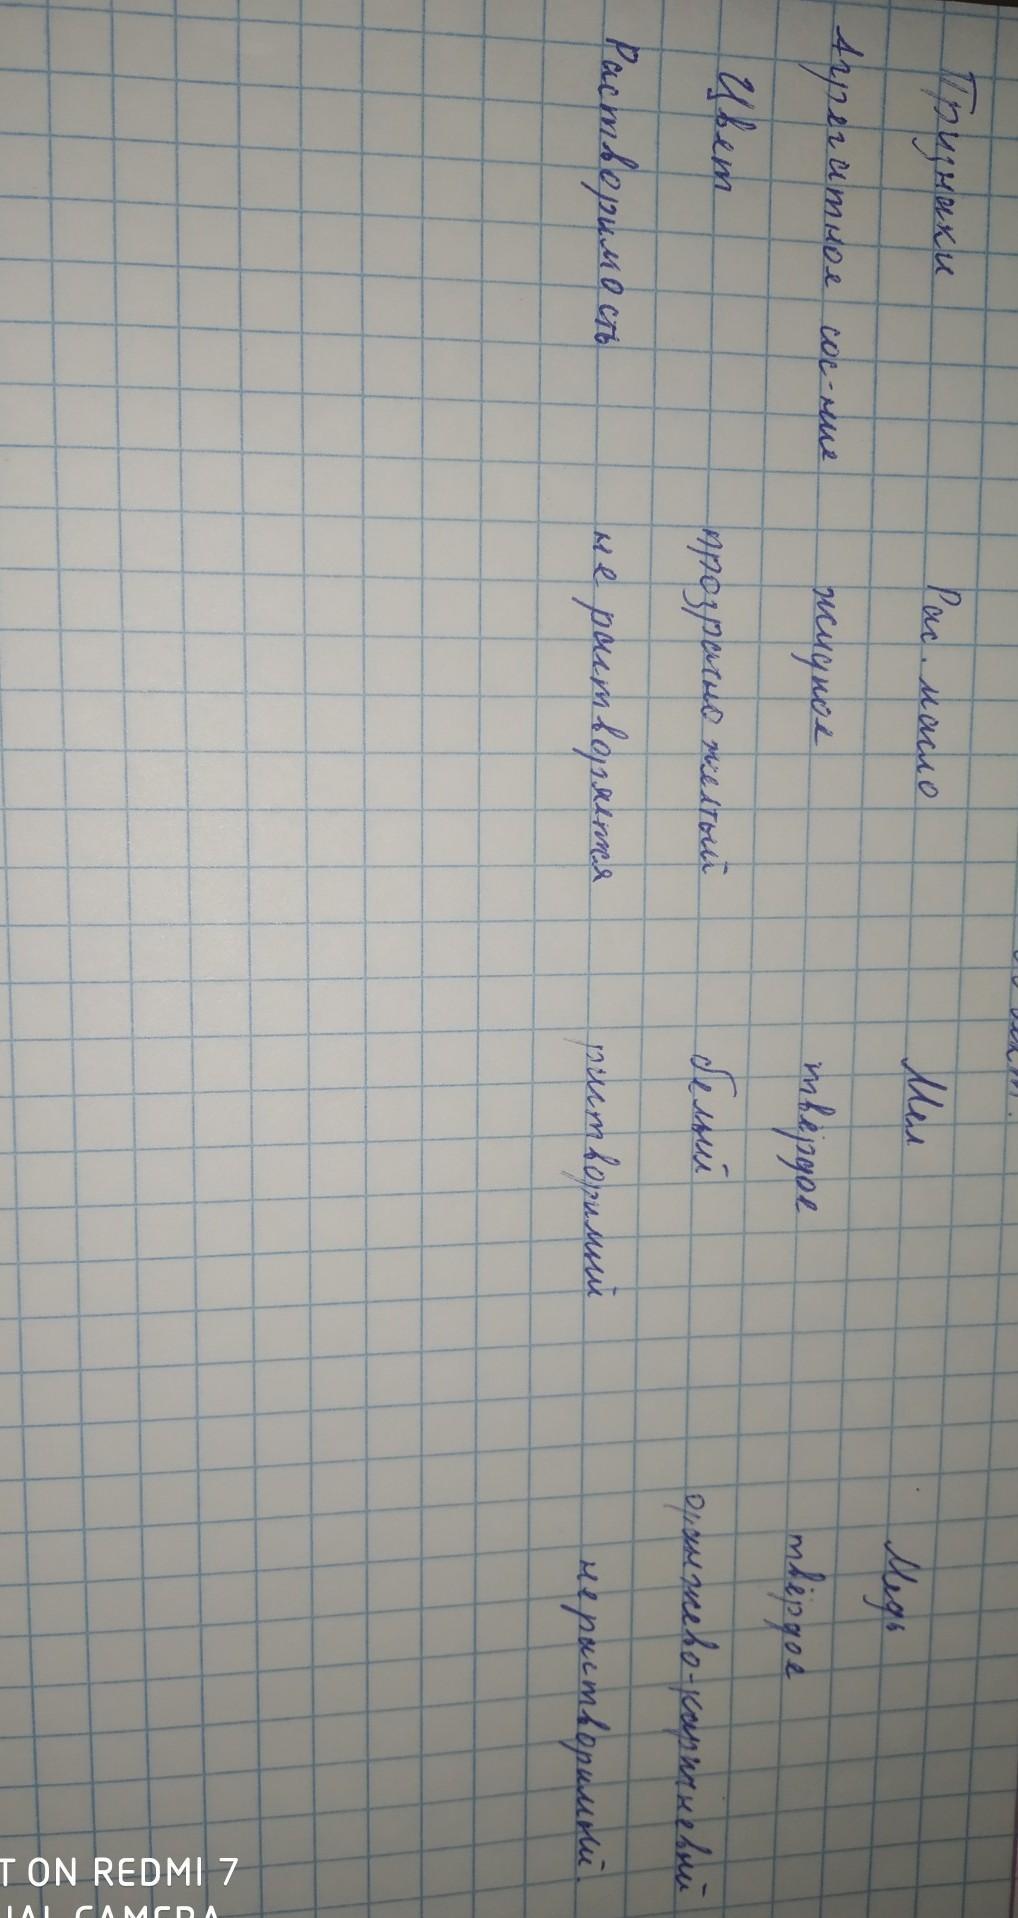 Признаки Рас. масло Мел Медь
Агрегатное сос-ние жидкое твёрдое твёрдое
Цвет прозрачно желтый белый оранжево-коричневый
Растворимость не растворяется растворимый не растворимый.
T ON REDMI 7
UAL CAMERA